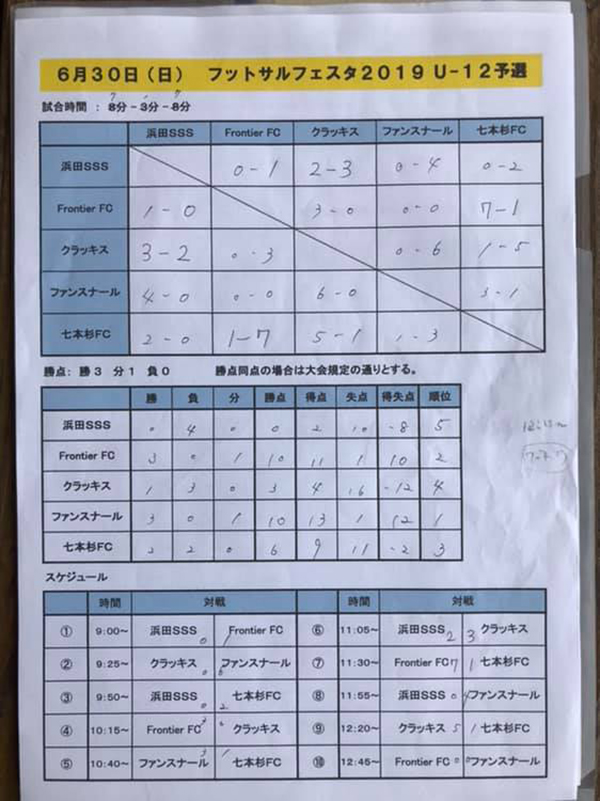 6月30日(日) フットサルフェスタ2019 U-12予選
7 7
試合時間 : 8分-3分-8分
浜田SSS Frontier FC クラッキス ファンスナール 七本杉FC
浜田SSS 0-1 2-3 0-4 0-2
Frontier FC 1-0 3-0 0-0 7-1
クラッキス 3-2 0-3 0-6 1-5
ファンスナール 4-0 0-0 6-0 3-1
七本杉FC 2-0 1-7 5-1 1-3
勝点: 勝3 分1 負0 勝点同点の場合は大会規定の通りとする。
勝 負 分 勝点 得点 失点 得失点 順位
浜田SSS 0 4 0 0 2 10 -8 5
Frontier FC 3 0 1 10 11 1 10 2
クラッキス 1 3 0 3 4 16 -12 4
ファンスナール 3 0 1 10 13 1 12 1
七本杉FC 2 2 0 6 9 11 -2 3
スケジュール
時間 対戦 時間 対戦
① 9:00~ 浜田SSS 0 1 Frontier FC ⑥ 11:05~ 浜田SSS 2 3 クラッキス
② 9:25~ クラッキス 0 6 ファンスナール ⑦ 11:30~ Frontier FC 7 1 七本杉FC
③ 9:50~ 浜田SSS 0 2 七本杉FC ⑧ 11:55~ 浜田SSS 0 4 ファンスナール
④ 10:15~ Frontier FC 3 0 クラッキス ⑨ 12:20~ クラッキス 5 1 七本杉FC
⑤ 10:40~ ファンスナール 3 1 七本杉FC ⑩ 12:45~ Frontier FC 0 0 ファンスナール